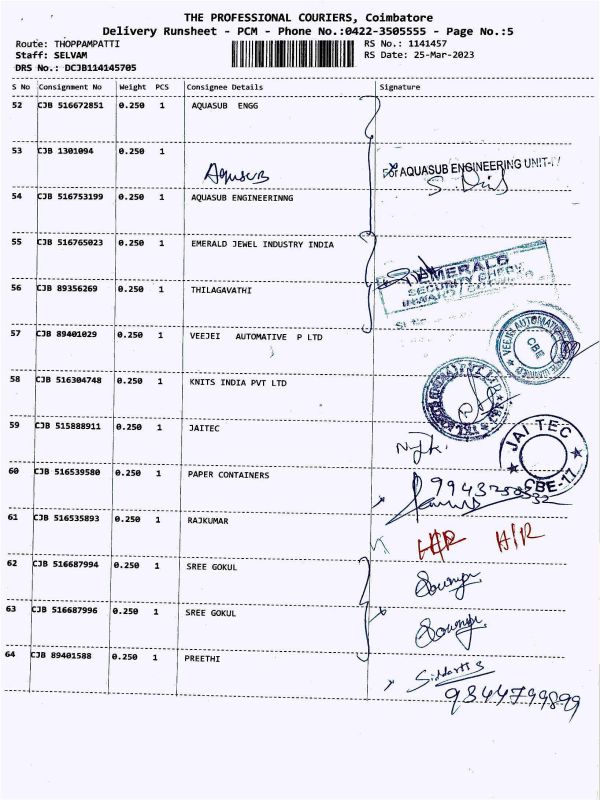 THE PROFESSIONAL COURIERS, Coimbatore
Delivery Runsheet - PCM - Phone No.:0422-3505555 - Page No.:5
Route: THOPPAMPATTI RS No.: 1141457
Staff: SELVAM RS Date: 25-Mar-2023
DRS No.: DCJB114145705
S No Consignment No Weight PCS Consignee Details Signature
52 CJB 516672851 0.250 1 AQUASUB ENGG
53 CJB 1301094 0.250 1 Aquasub
For AQUASUB ENGINEERING UNIT-IV
54 CJB 516753199 0.250 1 AQUASUB ENGINEERINNG
55 CJB 516765023 0.250 1 EMERALD JEWEL INDUSTRY INDIA
EMERALD
SECURITY CHECK
56 CJB 89356269 0.250 1 THILAGAVATHI
57 CJB 89401029 0.250 1 VEEJEI AUTOMATIVE P LTD
CBE
58 CJB 516304748 0.250 1 KNITS INDIA PVT LTD
59 CJB 515888911 0.250 1 JAITEC
JAI TEC
CBE-17
60 CJB 516539580 0.250 1 PAPER CONTAINERS
61 CJB 516535893 0.250 1 RAJKUMAR
H/R
62 CJB 516687994 0.250 1 SREE GOKUL
Sowmya
63 CJB 516687996 0.250 1 SREE GOKUL
Sowmya
64 CJB 89401588 0.250 1 PREETHI
9344799899